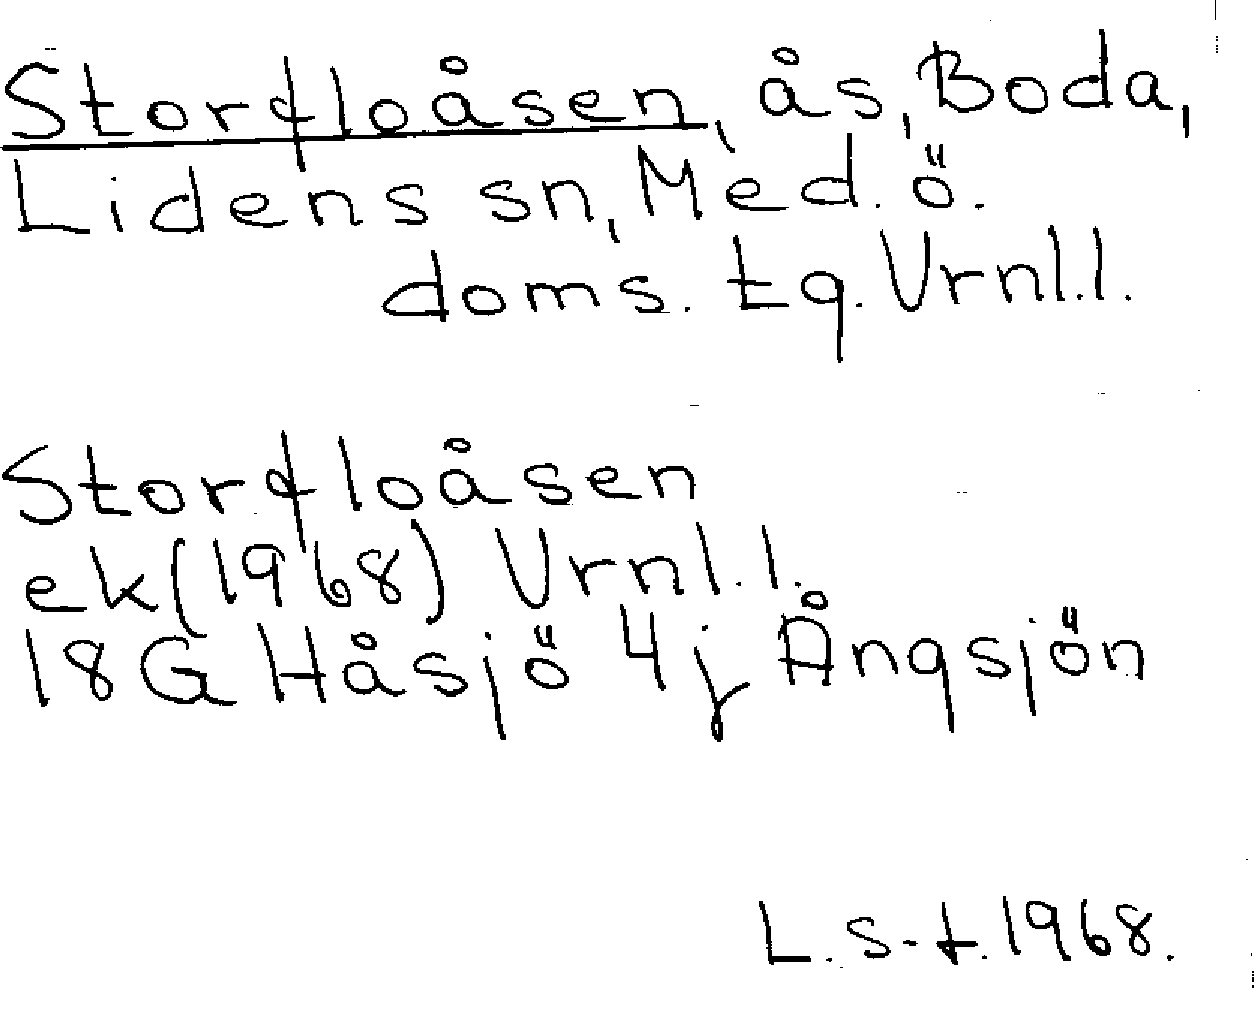 Storfloåsen, ås, Boda,
Lidens sn, Med. ö.
doms. tg. Vrnl.l.
Storfloåsen
ek (1968) Vrnl.l.
18G Håsjö 4j Ångsjön
L.S-t. 1968.